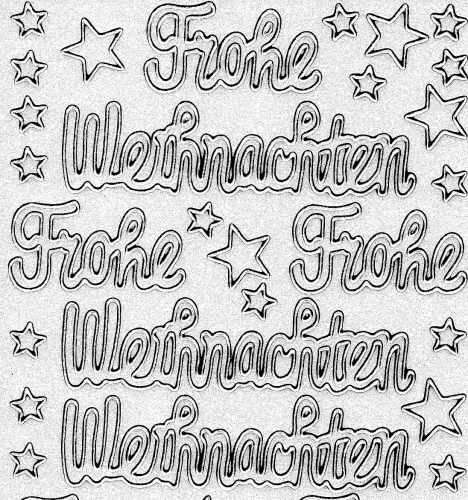 Frohe
Weihnachten
Frohe Frohe
Weihnachten
Weihnachten